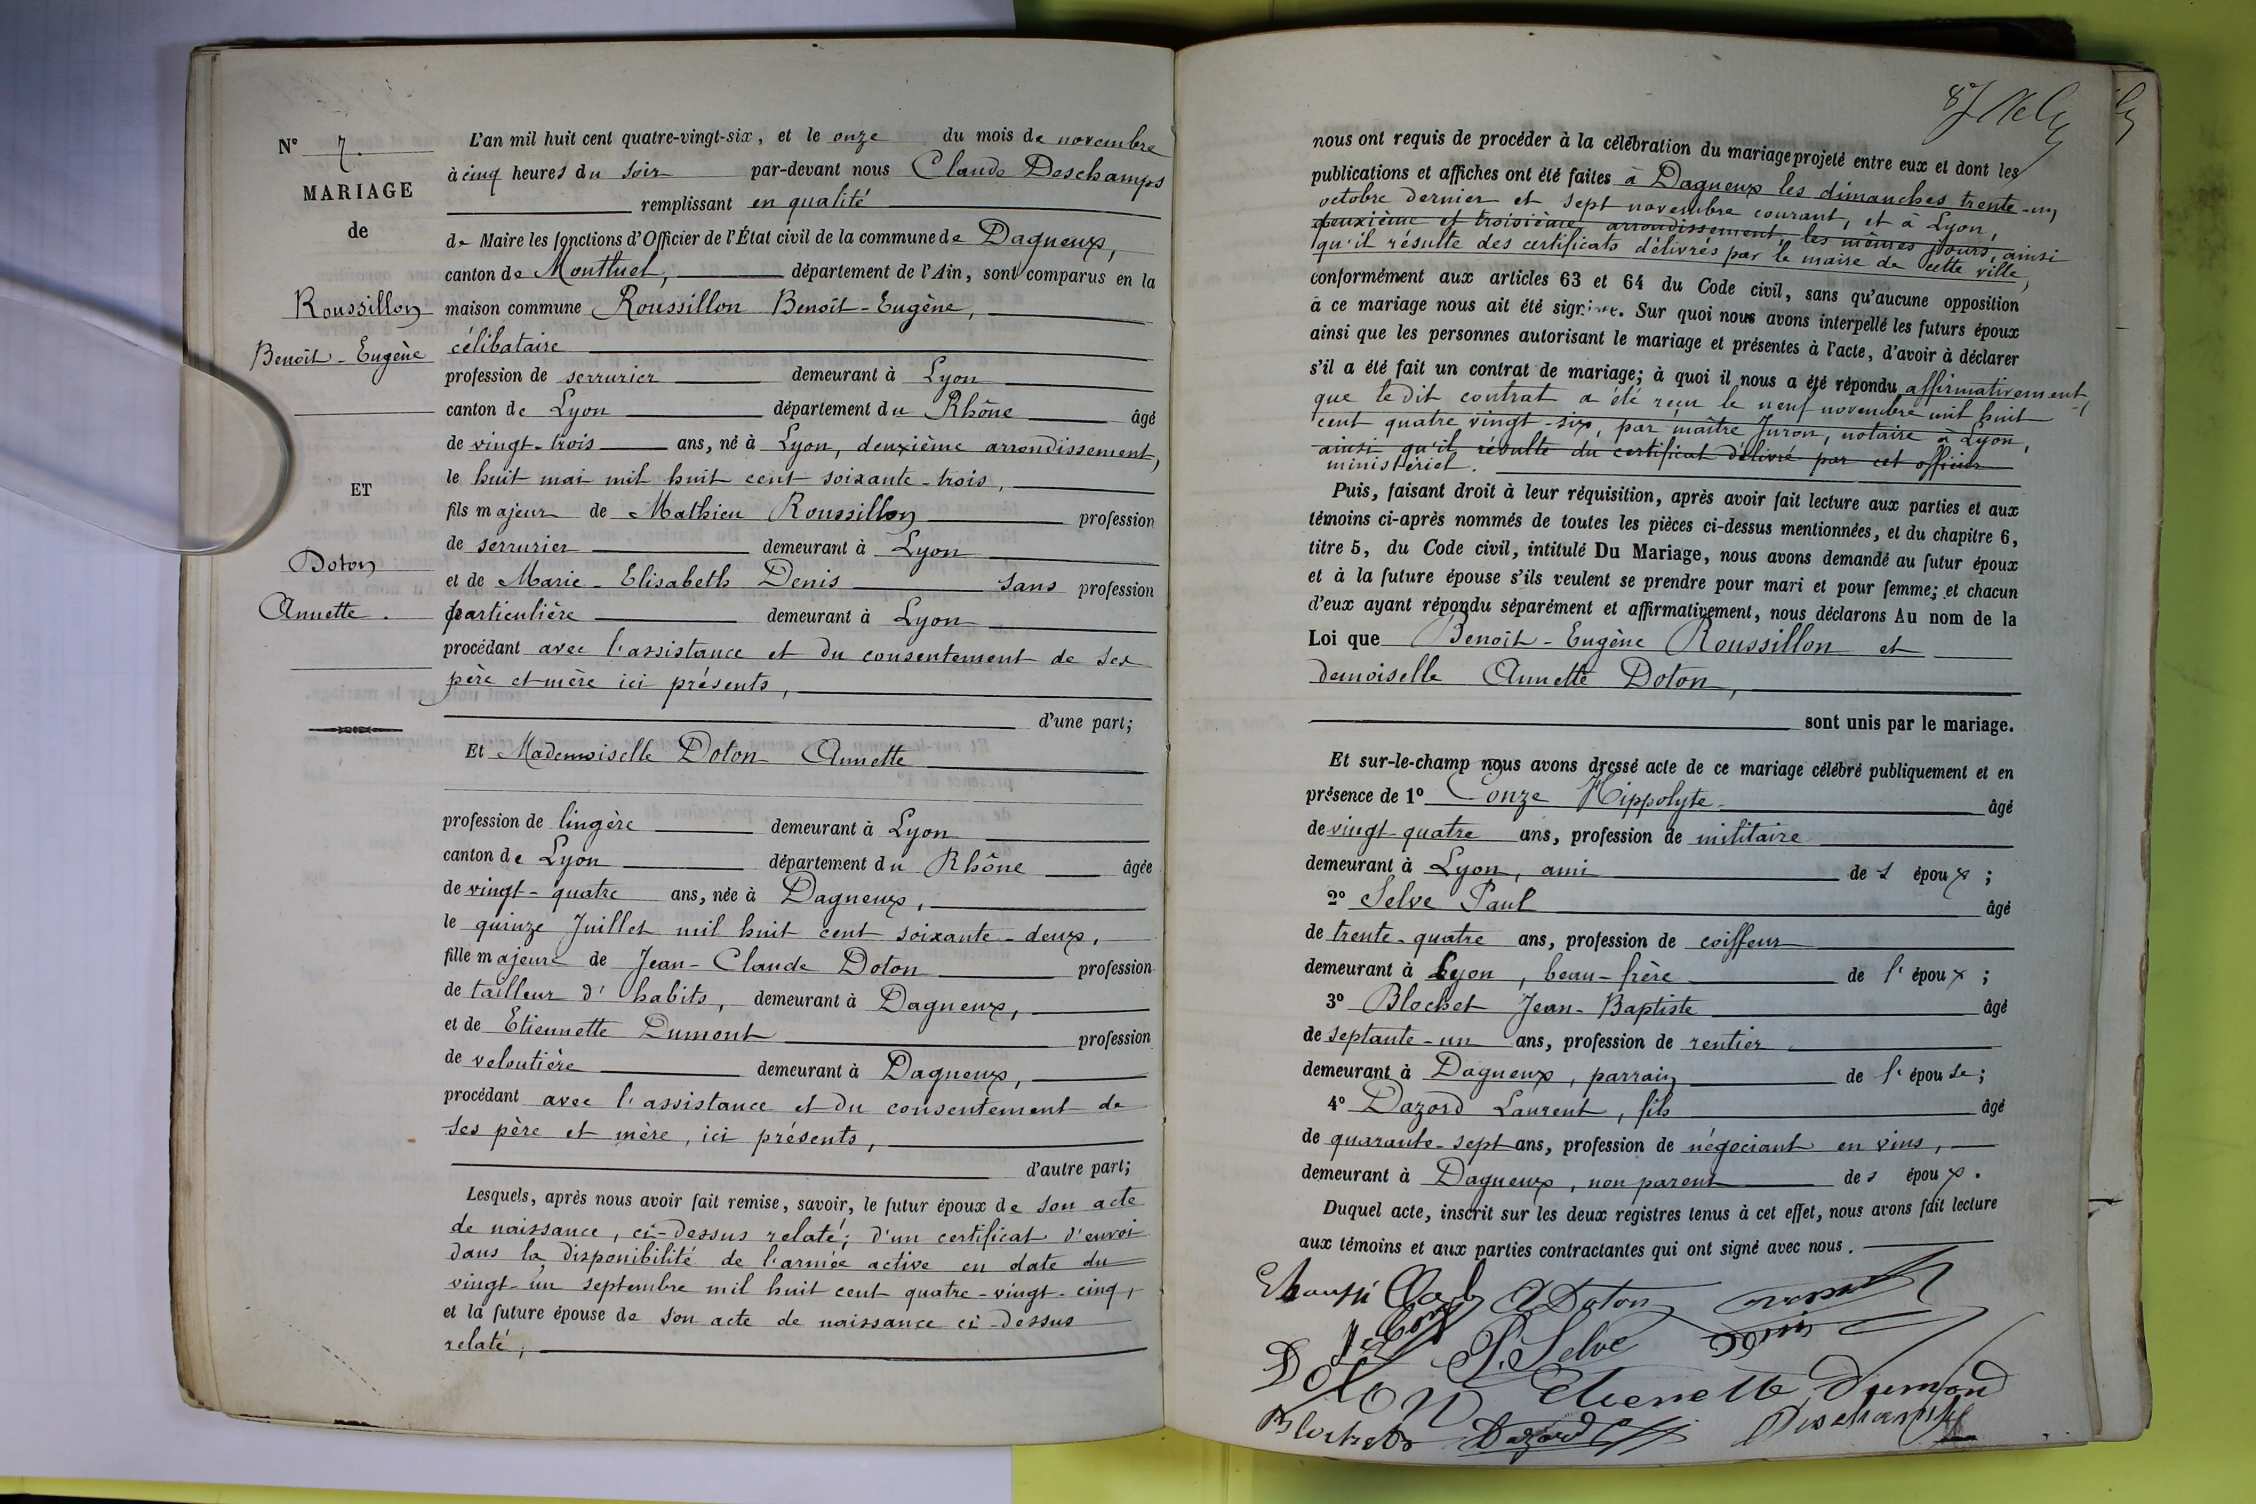 N° 7.
MARIAGE
de
Roussillon
Benoît-Eugène
ET
Doton
Annette.
L'an mil huit cent quatre-vingt-six, et le onze du mois de novembre
à cinq heures du soir par-devant nous Claude Deschamps
remplissant en qualité
de Maire les fonctions d'Officier de l'État civil de la commune de Dagneux,
canton de Montluel, département de l'Ain, sont comparus en la
maison commune Roussillon Benoît-Eugène,
célibataire
profession de serrurier demeurant à Lyon
canton de Lyon département du Rhône âgé
de vingt-trois ans, né à Lyon, deuxième arrondissement,
le huit mai mil huit cent soixante-trois,
fils majeur de Mathieu Roussillon profession
de serrurier demeurant à Lyon
et de Marie-Elisabeth Denis sans profession
particulière demeurant à Lyon
procédant avec l'assistance et du consentement de ses
père et mère ici présents,
d'une part;
Et Mademoiselle Doton Annette
profession de lingère demeurant à Lyon
canton de Lyon département du Rhône âgée
de vingt-quatre ans, née à Dagneux,
le quinze Juillet mil huit cent soixante-deux,
fille majeure de Jean-Claude Doton profession
de tailleur d'habits, demeurant à Dagneux,
et de Etiennette Dumont profession
de veloutière demeurant à Dagneux,
procédant avec l'assistance et du consentement de
ses père et mère, ici présents,
d'autre part;
Lesquels, après nous avoir fait remise, savoir, le futur époux de son acte
de naissance, ci-dessus relaté; d'un certificat d'envoi
dans la disponibilité de l'armée active en date du
vingt-un septembre mil huit cent quatre-vingt-cinq,
et la future épouse de son acte de naissance ci-dessus
relaté;
nous ont requis de procéder à la célébration du mariage projeté entre eux et dont les
publications et affiches ont été faites à Dagneux les dimanches trente-un
octobre dernier et sept novembre courant, et à Lyon,
deuxième et troisième arrondissement les mêmes jours, ainsi
qu'il résulte des certificats délivrés par le maire de cette ville,
conformément aux articles 63 et 64 du Code civil, sans qu'aucune opposition
à ce mariage nous ait été signifiée. Sur quoi nous avons interpellé les futurs époux
ainsi que les personnes autorisant le mariage et présentes à l'acte, d'avoir à déclarer
s'il a été fait un contrat de mariage; à quoi il nous a été répondu affirmativement,
que le dit contrat a été reçu le neuf novembre mil huit
cent quatre vingt-six, par maître Juron, notaire à Lyon,
ainsi qu'il résulte du certificat délivré par cet officier
ministériel.
Puis, faisant droit à leur réquisition, après avoir fait lecture aux parties et aux
témoins ci-après nommés de toutes les pièces ci-dessus mentionnées, et du chapitre 6,
titre 5, du Code civil, intitulé Du Mariage, nous avons demandé au futur époux
et à la future épouse s'ils veulent se prendre pour mari et pour femme; et chacun
d'eux ayant répondu séparément et affirmativement, nous déclarons Au nom de la
Loi que Benoît-Eugène Roussillon et
demoiselle Annette Doton,
sont unis par le mariage.
Et sur-le-champ nous avons dressé acte de ce mariage célébré publiquement et en
présence de 1° Conze Hippolyte âgé
de vingt-quatre ans, profession de militaire
demeurant à Lyon, ami de s époux;
2° Selve Paul âgé
de trente-quatre ans, profession de coiffeur
demeurant à Lyon, beau-frère de l'époux;
3° Blochet Jean-Baptiste âgé
de septante-un ans, profession de rentier
demeurant à Dagneux, parrain de l'épouse;
4° Dazord Laurent, fils âgé
de quarante-sept ans, profession de négociant en vins,
demeurant à Dagneux, non parent des époux.
Duquel acte, inscrit sur les deux registres tenus à cet effet, nous avons fait lecture
aux témoins et aux parties contractantes qui ont signé avec nous.
A Doton
P. Selve
Denis
Doton Etienette Dumond
Blochet Dazord Deschamps